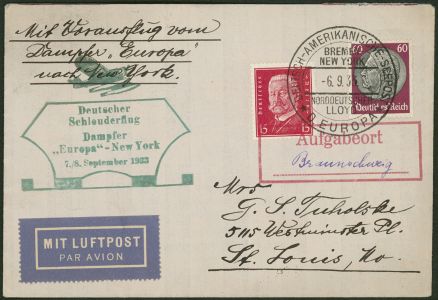 Mit Vorausflug vom
Dampfer „Europa"
nach New York.
DEUTSCH-AMERIKANISCHE SEEPOST
BREMEN
NEW YORK
-6.9.33
NORDDEUTSCHER
LLOYD
EUROPA
60 60
Deutsches Reich
15 15
Deutscher
Schleuderflug
Dampfer
„Europa"-New York
7./8. September 1933
Aufgabeort
Braunschweig
MIT LUFTPOST
PAR AVION
Mrs
G. S. Tuholske
5115 Westminster Pl.
St. Louis, Mo.